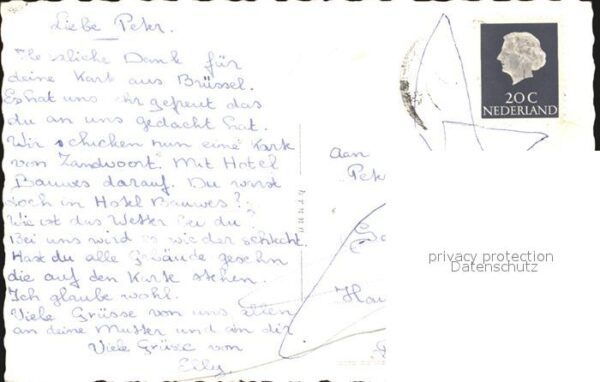 Liebe Peter.
Herzliche Dank für
deine Kart aus Brüssel.
Es hat uns ihr gefreut das
du an uns gedacht hat.
Wir schicken nun eine Kark
von Zandvoort. Mit Hotel
Bauwes darauf. Du warst
doch in Hotel Bauwes?
Wie ist das Wetter bei du?
Bei uns wird es wieder schlecht.
Hast du alle Gebäude gesehn
die auf den Karte stehen.
Ich glaube wohl.
Viele Grüsse von uns allen
an deine Mutter und an dir
Viele Grüsse von
Elly
20C
NEDERLAND
aan
Pet
privacy protection
Datenschutz